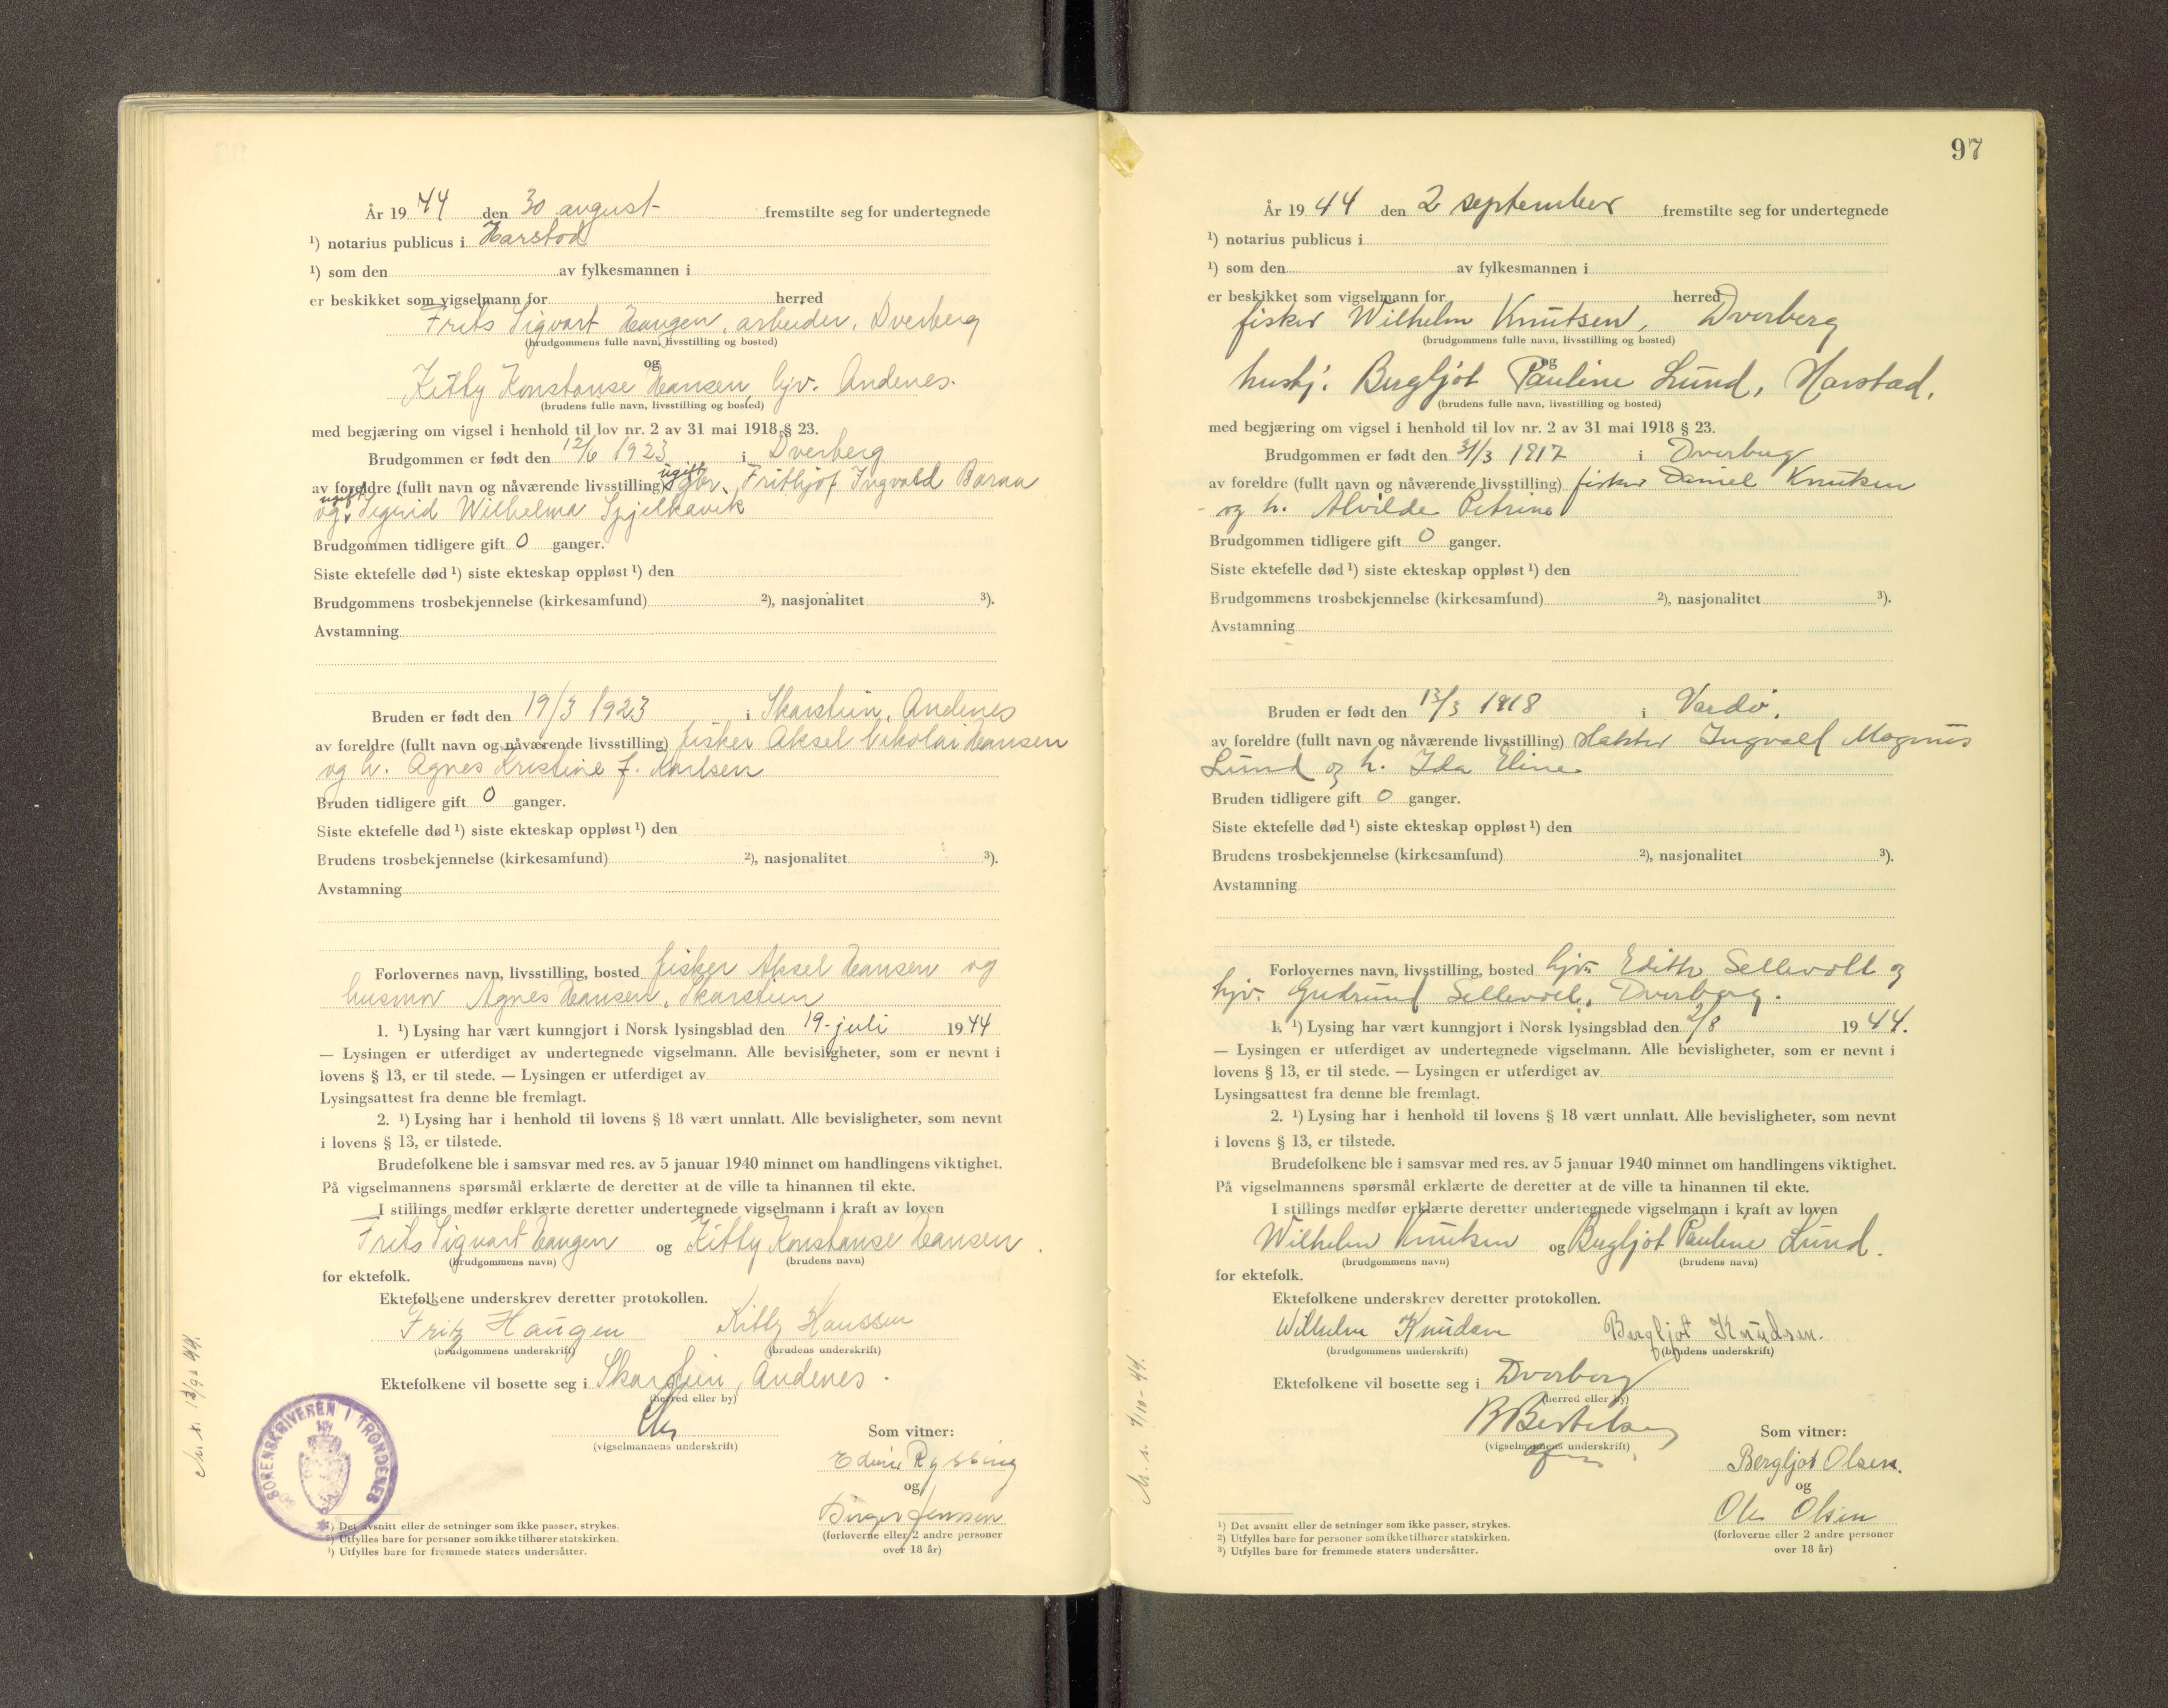 År 1944 den 30 august fremstilte seg for undertegnede
¹) notarius publicus i Harstad
¹) som den av fylkesmannen i
er beskikket som vigselmann for herred
Frits Sigvart Haugen, arbeider, Dverberg
(brudgommens fulle navn, livsstilling og bosted)
og
Kitty Konstanse Hansen, hjv. Andenes.
(brudens fulle navn, livsstilling og bosted)
med begjæring om vigsel i henhold til lov nr. 2 av 31 mai 1918 § 23.
Brudgommen er født den 12/6 1923 i Dverberg
av foreldre (fullt navn og nåværende livsstilling) ugift Frithjof Ingvald
og ugift Sigrid Wilhelma Spjelkavik
Brudgommen tidligere gift 0 ganger.
Siste ektefelle død ¹) siste ekteskap oppløst ¹) den
Brudgommens trosbekjennelse (kirkesamfund) ²), nasjonalitet ³).
Avstamning
Bruden er født den 19/3 1923 i Skarstein, Andenes
av foreldre (fullt navn og nåværende livsstilling) fisker Aksel Nikolai Hansen
og h. Agnes Kristine f. Karlsen
Bruden tidligere gift 0 ganger.
Siste ektefelle død ¹) siste ekteskap oppløst ¹) den
Brudens trosbekjennelse (kirkesamfund) ²), nasjonalitet ³).
Avstamning
Forlovernes navn, livsstilling, bosted fisker Aksel Hansen og
husmor Agnes Hansen, Skarstein
1. ¹) Lysing har vært kunngjort i Norsk lysingsblad den 19-juli 1944
— Lysingen er utferdiget av undertegnede vigselmann. Alle bevisligheter, som er nevnt i
lovens § 13, er til stede. — Lysingen er utferdiget av
Lysingsattest fra denne ble fremlagt.
2. ¹) Lysing har i henhold til lovens § 18 vært unnlatt. Alle bevisligheter, som nevnt
i lovens § 13, er tilstede.
Brudefolkene ble i samsvar med res. av 5 januar 1940 minnet om handlingens viktighet.
På vigselmannens spørsmål erklærte de deretter at de ville ta hinannen til ekte.
I stillings medfør erklærte deretter undertegnede vigselmann i kraft av loven
Frits Sigvart Haugen og Kitty Konstanse Hansen
(brudgommens navn) (brudens navn)
for ektefolk.
Ektefolkene underskrev deretter protokollen.
Fritz Haugen Kitty Hanssen
(brudgommens underskrift) (brudens underskrift)
Ektefolkene vil bosette seg i Skarstein, Andenes.
(herred eller by)
(vigselmannens underskrift)
Som vitner:
og
Birger Jenssen
(forloverne eller 2 andre personer
over 18 år)
SORENSKRIVEREN I TRONDENES
¹) Det avsnitt eller de setninger som ikke passer, strykes.
²) Utfylles bare for personer som ikke tilhører statskirken.
³) Utfylles bare for fremmede staters undersåtter.
97
År 1944 den 2 september fremstilte seg for undertegnede
¹) notarius publicus i
¹) som den av fylkesmannen i
er beskikket som vigselmann for herred
fisker Wilhelm Knutsen, Dverberg
(brudgommens fulle navn, livsstilling og bosted)
og
hushj. Bergljot Pauline Lund, Harstad.
(brudens fulle navn, livsstilling og bosted)
med begjæring om vigsel i henhold til lov nr. 2 av 31 mai 1918 § 23.
Brudgommen er født den 31/3 1917 i Dverberg
av foreldre (fullt navn og nåværende livsstilling) fisker Daniel Knutsen
og h. Alvilde Petrine
Brudgommen tidligere gift 0 ganger.
Siste ektefelle død ¹) siste ekteskap oppløst ¹) den
Brudgommens trosbekjennelse (kirkesamfund) ²), nasjonalitet ³).
Avstamning
Bruden er født den 13/3 1918 i Vardø.
av foreldre (fullt navn og nåværende livsstilling) slakter Ingvald Magnus
Lund og h. Ida Eline
Bruden tidligere gift 0 ganger.
Siste ektefelle død ¹) siste ekteskap oppløst ¹) den
Brudens trosbekjennelse (kirkesamfund) ²), nasjonalitet ³).
Avstamning
Forlovernes navn, livsstilling, bosted hjv. Edith Sellevoll og
hjv. Gudrund Sellevoll, Dverberg.
1. ¹) Lysing har vært kunngjort i Norsk lysingsblad den 2/8 1944.
— Lysingen er utferdiget av undertegnede vigselmann. Alle bevisligheter, som er nevnt i
lovens § 13, er til stede. — Lysingen er utferdiget av
Lysingsattest fra denne ble fremlagt.
2. ¹) Lysing har i henhold til lovens § 18 vært unnlatt. Alle bevisligheter, som nevnt
i lovens § 13, er tilstede.
Brudefolkene ble i samsvar med res. av 5 januar 1940 minnet om handlingens viktighet.
På vigselmannens spørsmål erklærte de deretter at de ville ta hinannen til ekte.
I stillings medfør erklærte deretter undertegnede vigselmann i kraft av loven
Wilhelm Knutsen og Bergljot Pauline Lund.
(brudgommens navn) (brudens navn)
for ektefolk.
Ektefolkene underskrev deretter protokollen.
Wilhelm Knudsen Bergljot Knudsen.
(brudgommens underskrift) (brudens underskrift)
Ektefolkene vil bosette seg i Dverberg
(herred eller by)
B Bertelsen
(vigselmannens underskrift)
Som vitner:
Bergljot Olsen.
og
Ole Olsen
(forloverne eller 2 andre personer
over 18 år)
M. s. 4/10-44.
¹) Det avsnitt eller de setninger som ikke passer, strykes.
²) Utfylles bare for personer som ikke tilhører statskirken.
³) Utfylles bare for fremmede staters undersåtter.